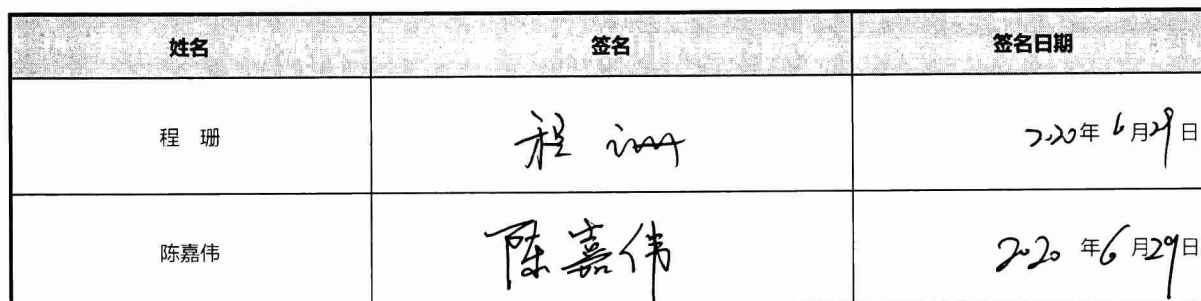 姓名 签名 签名日期
程 珊 程 珊 2020年 6月29日
陈嘉伟 陈嘉伟 2020年6月29日